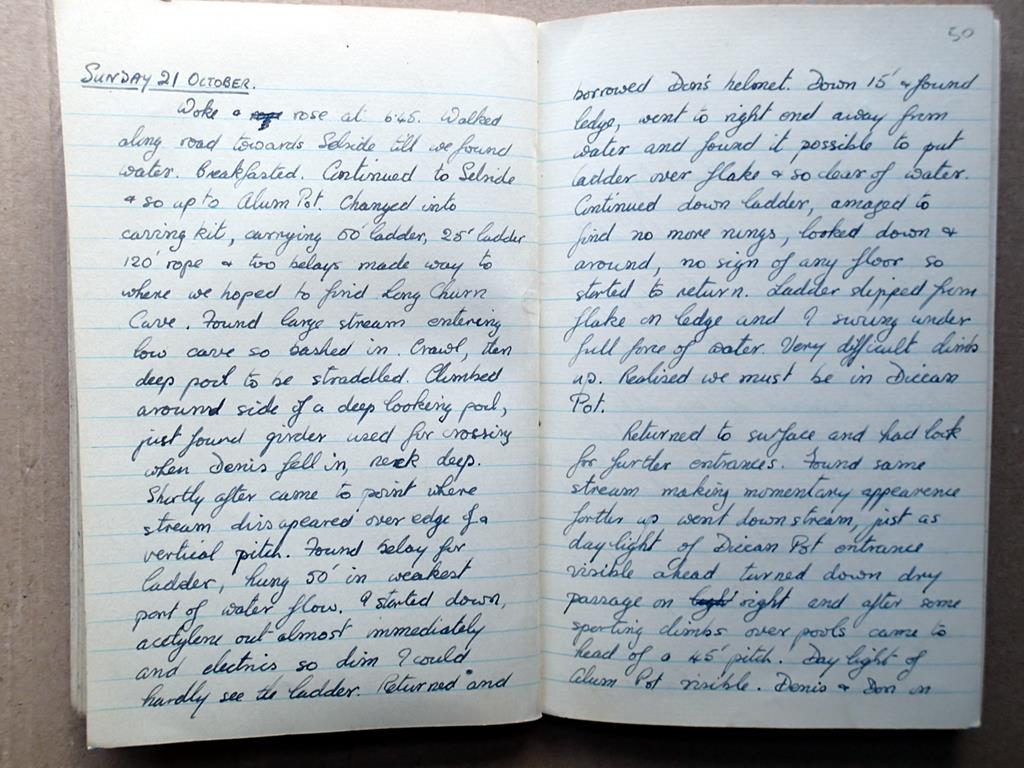 SUNDAY 21 OCTOBER.
Woke & rose at 6.45. Walked
along road towards Selside till we found
water. Breakfasted. Continued to Selside
& so up to Alum Pot. Changed into
caving kit, carrying 50' ladder, 25' ladder
120' rope & two belays made way to
where we hoped to find Long Churn
Cave. Found large stream entering
low cave so bashed in. Crawl, then
deep pool to be straddled. Climbed
around side of a deep looking pool,
just found girder used for crossing
when Denis fell in, neck deep.
Shortly after came to point where
stream dissapeared over edge of a
vertical pitch. Found belay for
ladder, hung 50' in weakest
part of water flow. I started down,
acetylene out almost immediately
and electric so dim I could
hardly see the ladder. Returned and
50
borrowed Don's helmet. Down 15' & found
ledge, went to right end away from
water and found it possible to put
ladder over flake & so clear of water.
Continued down ladder, amazed to
find no more rungs, looked down &
around, no sign of any floor so
started to return. Ladder slipped from
flake on ledge and I swung under
full force of water. Very difficult climb
up. Realised we must be in Diccan
Pot.
Returned to surface and had look
for further entrances. Found same
stream making momentary appearence
further up, went down stream, just as
daylight of Diccan Pot entrance
visible ahead turned down dry
passage on right and after some
sporting climbs over pools came to
head of a 45' pitch. Day light of
Alum Pot visible. Denis & Don in